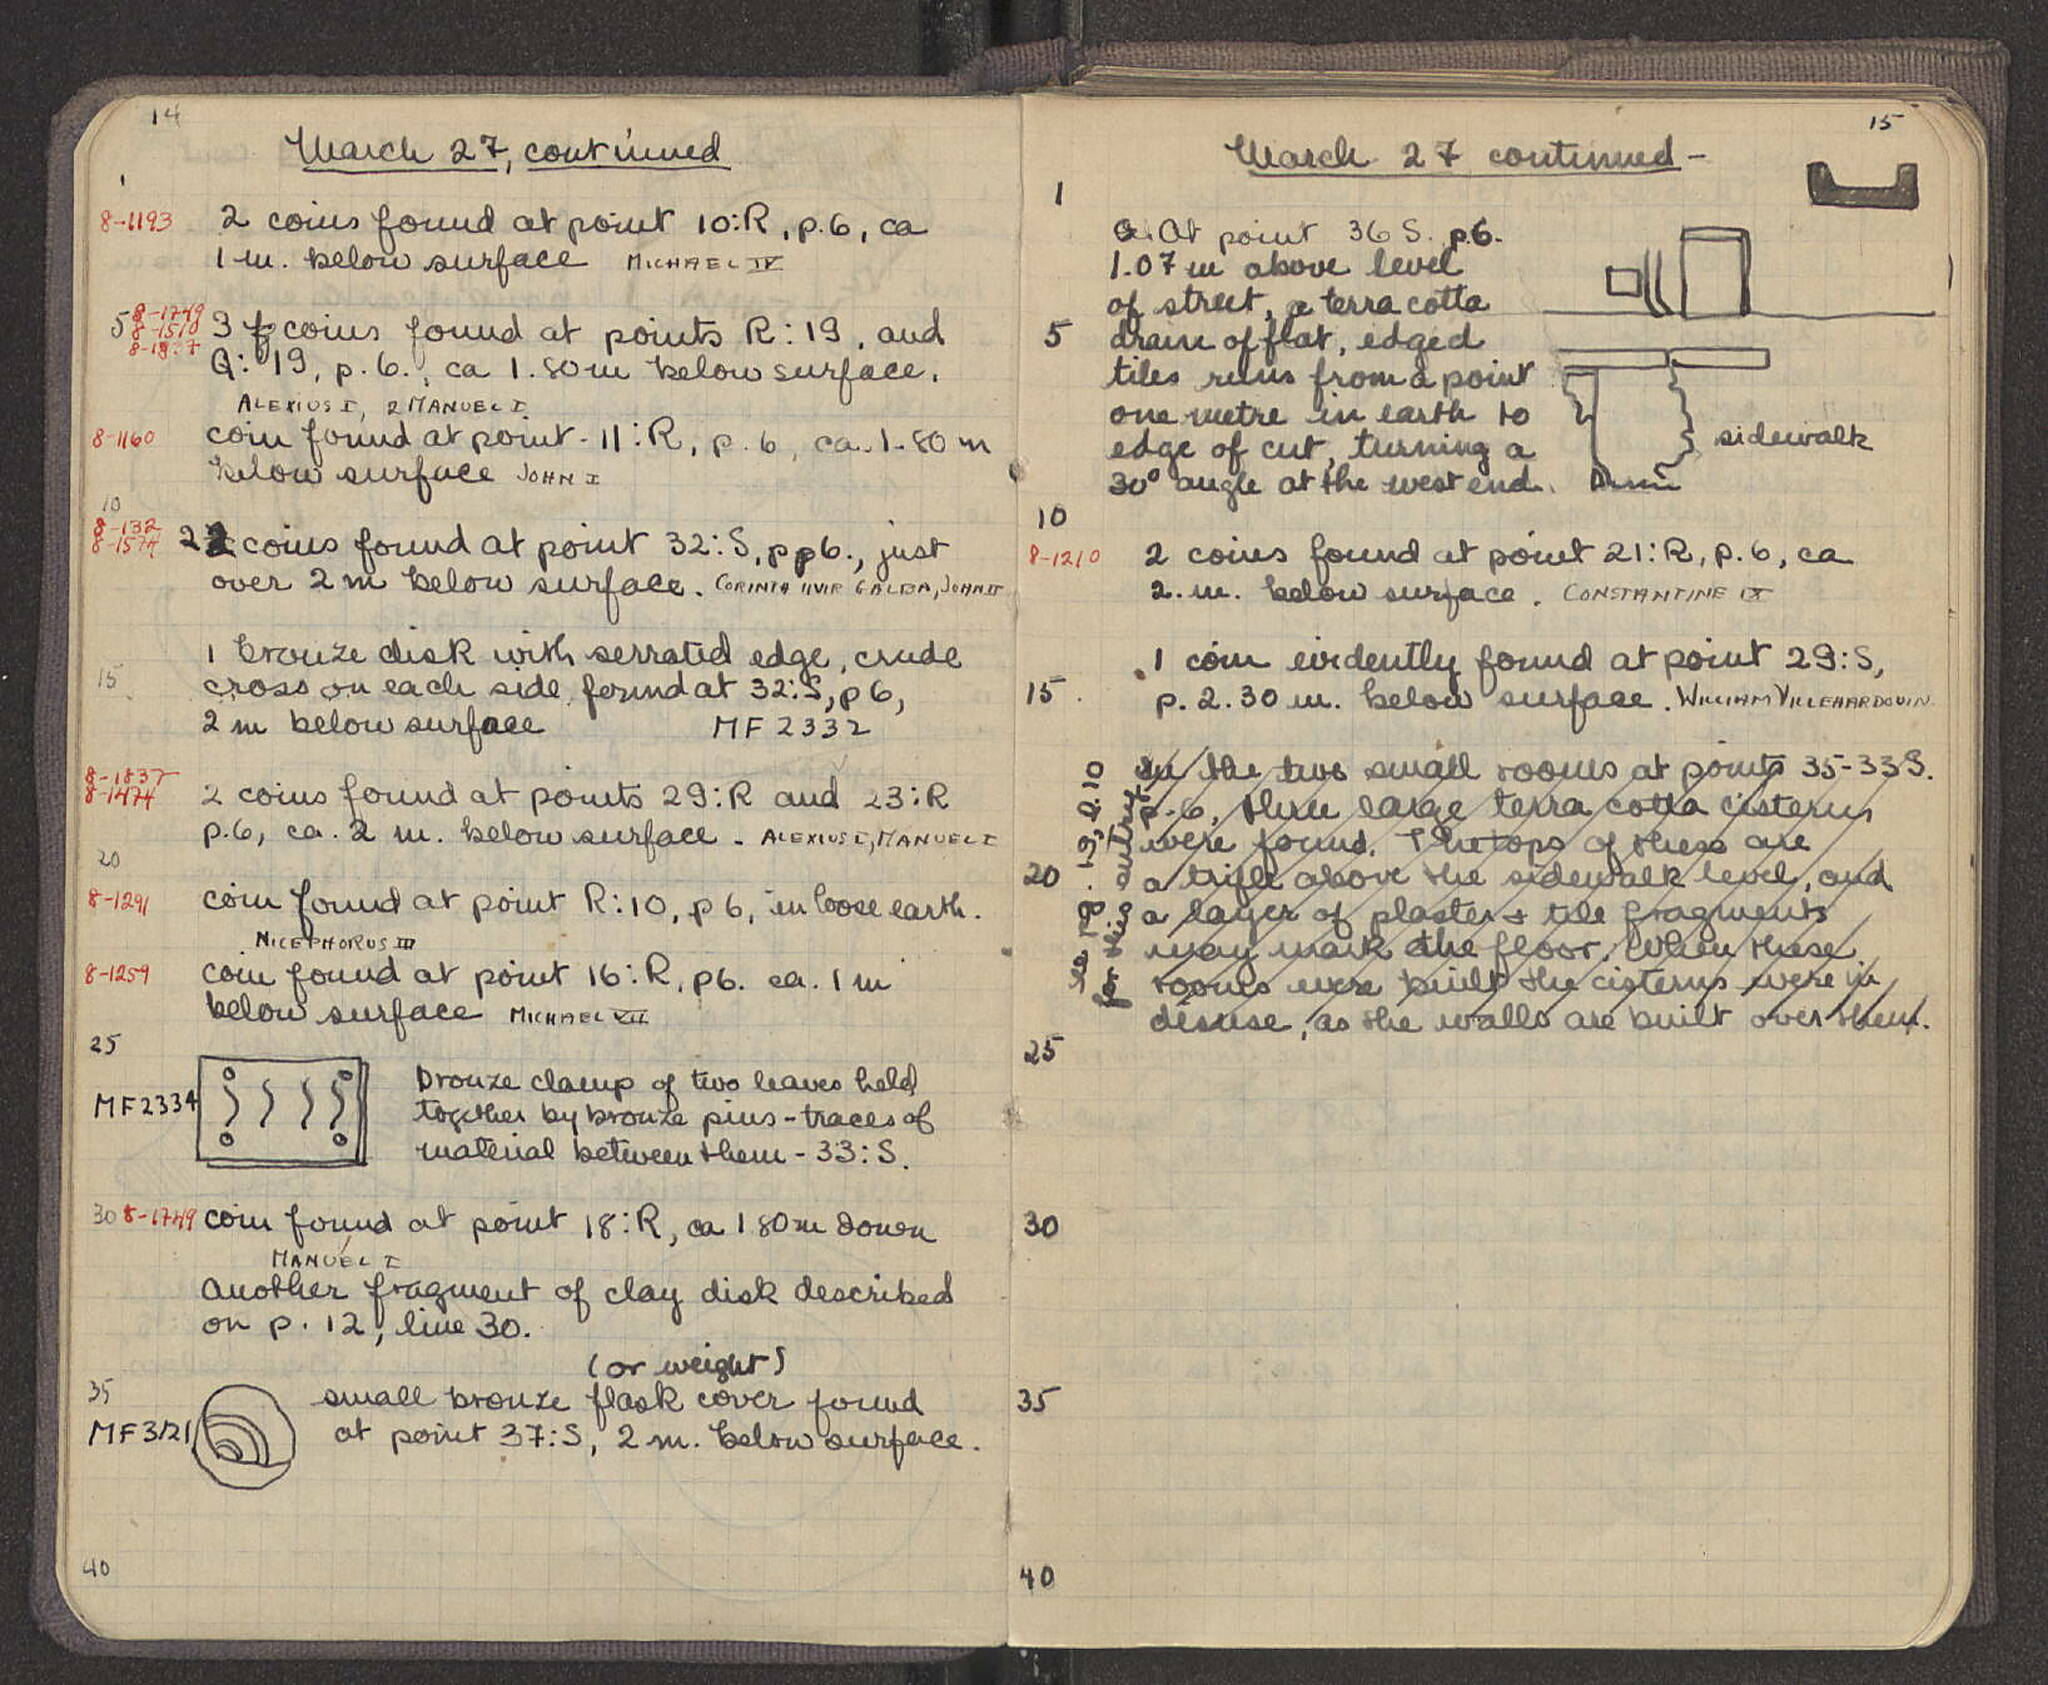 14
March 27, continued
1
8-1193 2 coins found at point 10:R, p.6, ca
1 m. below surface MICHAEL IV
5 8-1749
8-1510
3 coins found at points R:19, and
Q: 19, p. 6., ca 1.80 m below surface.
ALEXIUS I, 2 MANUEL I
8-1160 coin found at point - 11:R, p. 6, ca. 1.80 m
below surface JOHN I
10
8-132
8-1574
2 coins found at point 32:S, p p6., just
over 2 m below surface. CORINTH IIVIR GALBA, JOHN II
1 bronze disk with serrated edge, crude
15 cross on each side found at 32:S, p 6,
2 m below surface MF 2332
8-1837
8-1474
2 coins found at points 29:R and 23:R
p.6, ca. 2 m. below surface - ALEXIUS I, MANUEL I
20
8-1291 coin found at point R:10, p 6, in loose earth.
NICEPHORUS III
8-1259 coin found at point 16:R, p6. ca. 1 m
below surface MICHAEL VII
25
bronze clamp of two leaves held
MF2334 together by bronze pins - traces of
material between them - 33:S.
30 8-1749 coin found at point 18:R, ca 1 80 m down
MANUEL I
another fragment of clay disk described
on p. 12, line 30.
(or weight)
35 small bronze flask cover found
MF3121 at point 37:S, 2 m. below surface.
40
15
March 27 continued -
1
At point 36 S. p.6.
1.07 m above level
of street, a terra cotta
5 drain of flat, edged
tiles runs from a point
one metre in earth to
edge of cut, turning a
30° angle at the west end.
sidewalk
Drain
10
8-1210 2 coins found at point 21:R, p. 6, ca
2. m. below surface. CONSTANTINE IX
1 coin evidently found at point 29:S,
15 p. 2.30 m. below surface. WILLIAM VILLEHARDOUIN
In the two small rooms at points 35-33 S.
p.6, three large terra cotta cisterns
were found. The tops of these are
20 a trifle above the sidewalk level, and
a layer of plaster + tile fragments
may mark the floor. When these
rooms were built the cisterns were in
disuse, as the walls are built over them.
see pg. 19, l. 10
for this entry
25
30
35
40